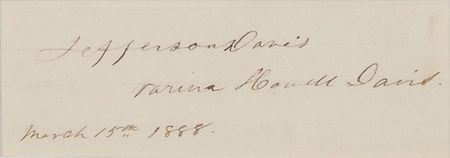 Jefferson Davis
Varina Howell Davis.
March 15th 1888.